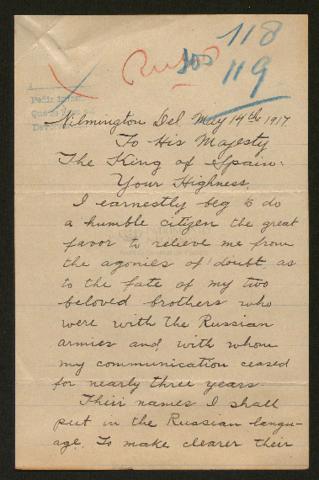 Rusos
118
119
A
Pedir infor
Wilmington Del May 14th 1917
To His Majesty
The King of Spain:
Your Highness,
I earnestly beg to do
a humble citizen the great
favor to relieve me from
the agonies of doubt as
to the fate of my two
beloved brothers who
were with the Russian
armies and, with whom
my communication ceased
for nearly three years
Their names I shall
put in the Russian langu-
age. To make clearer their